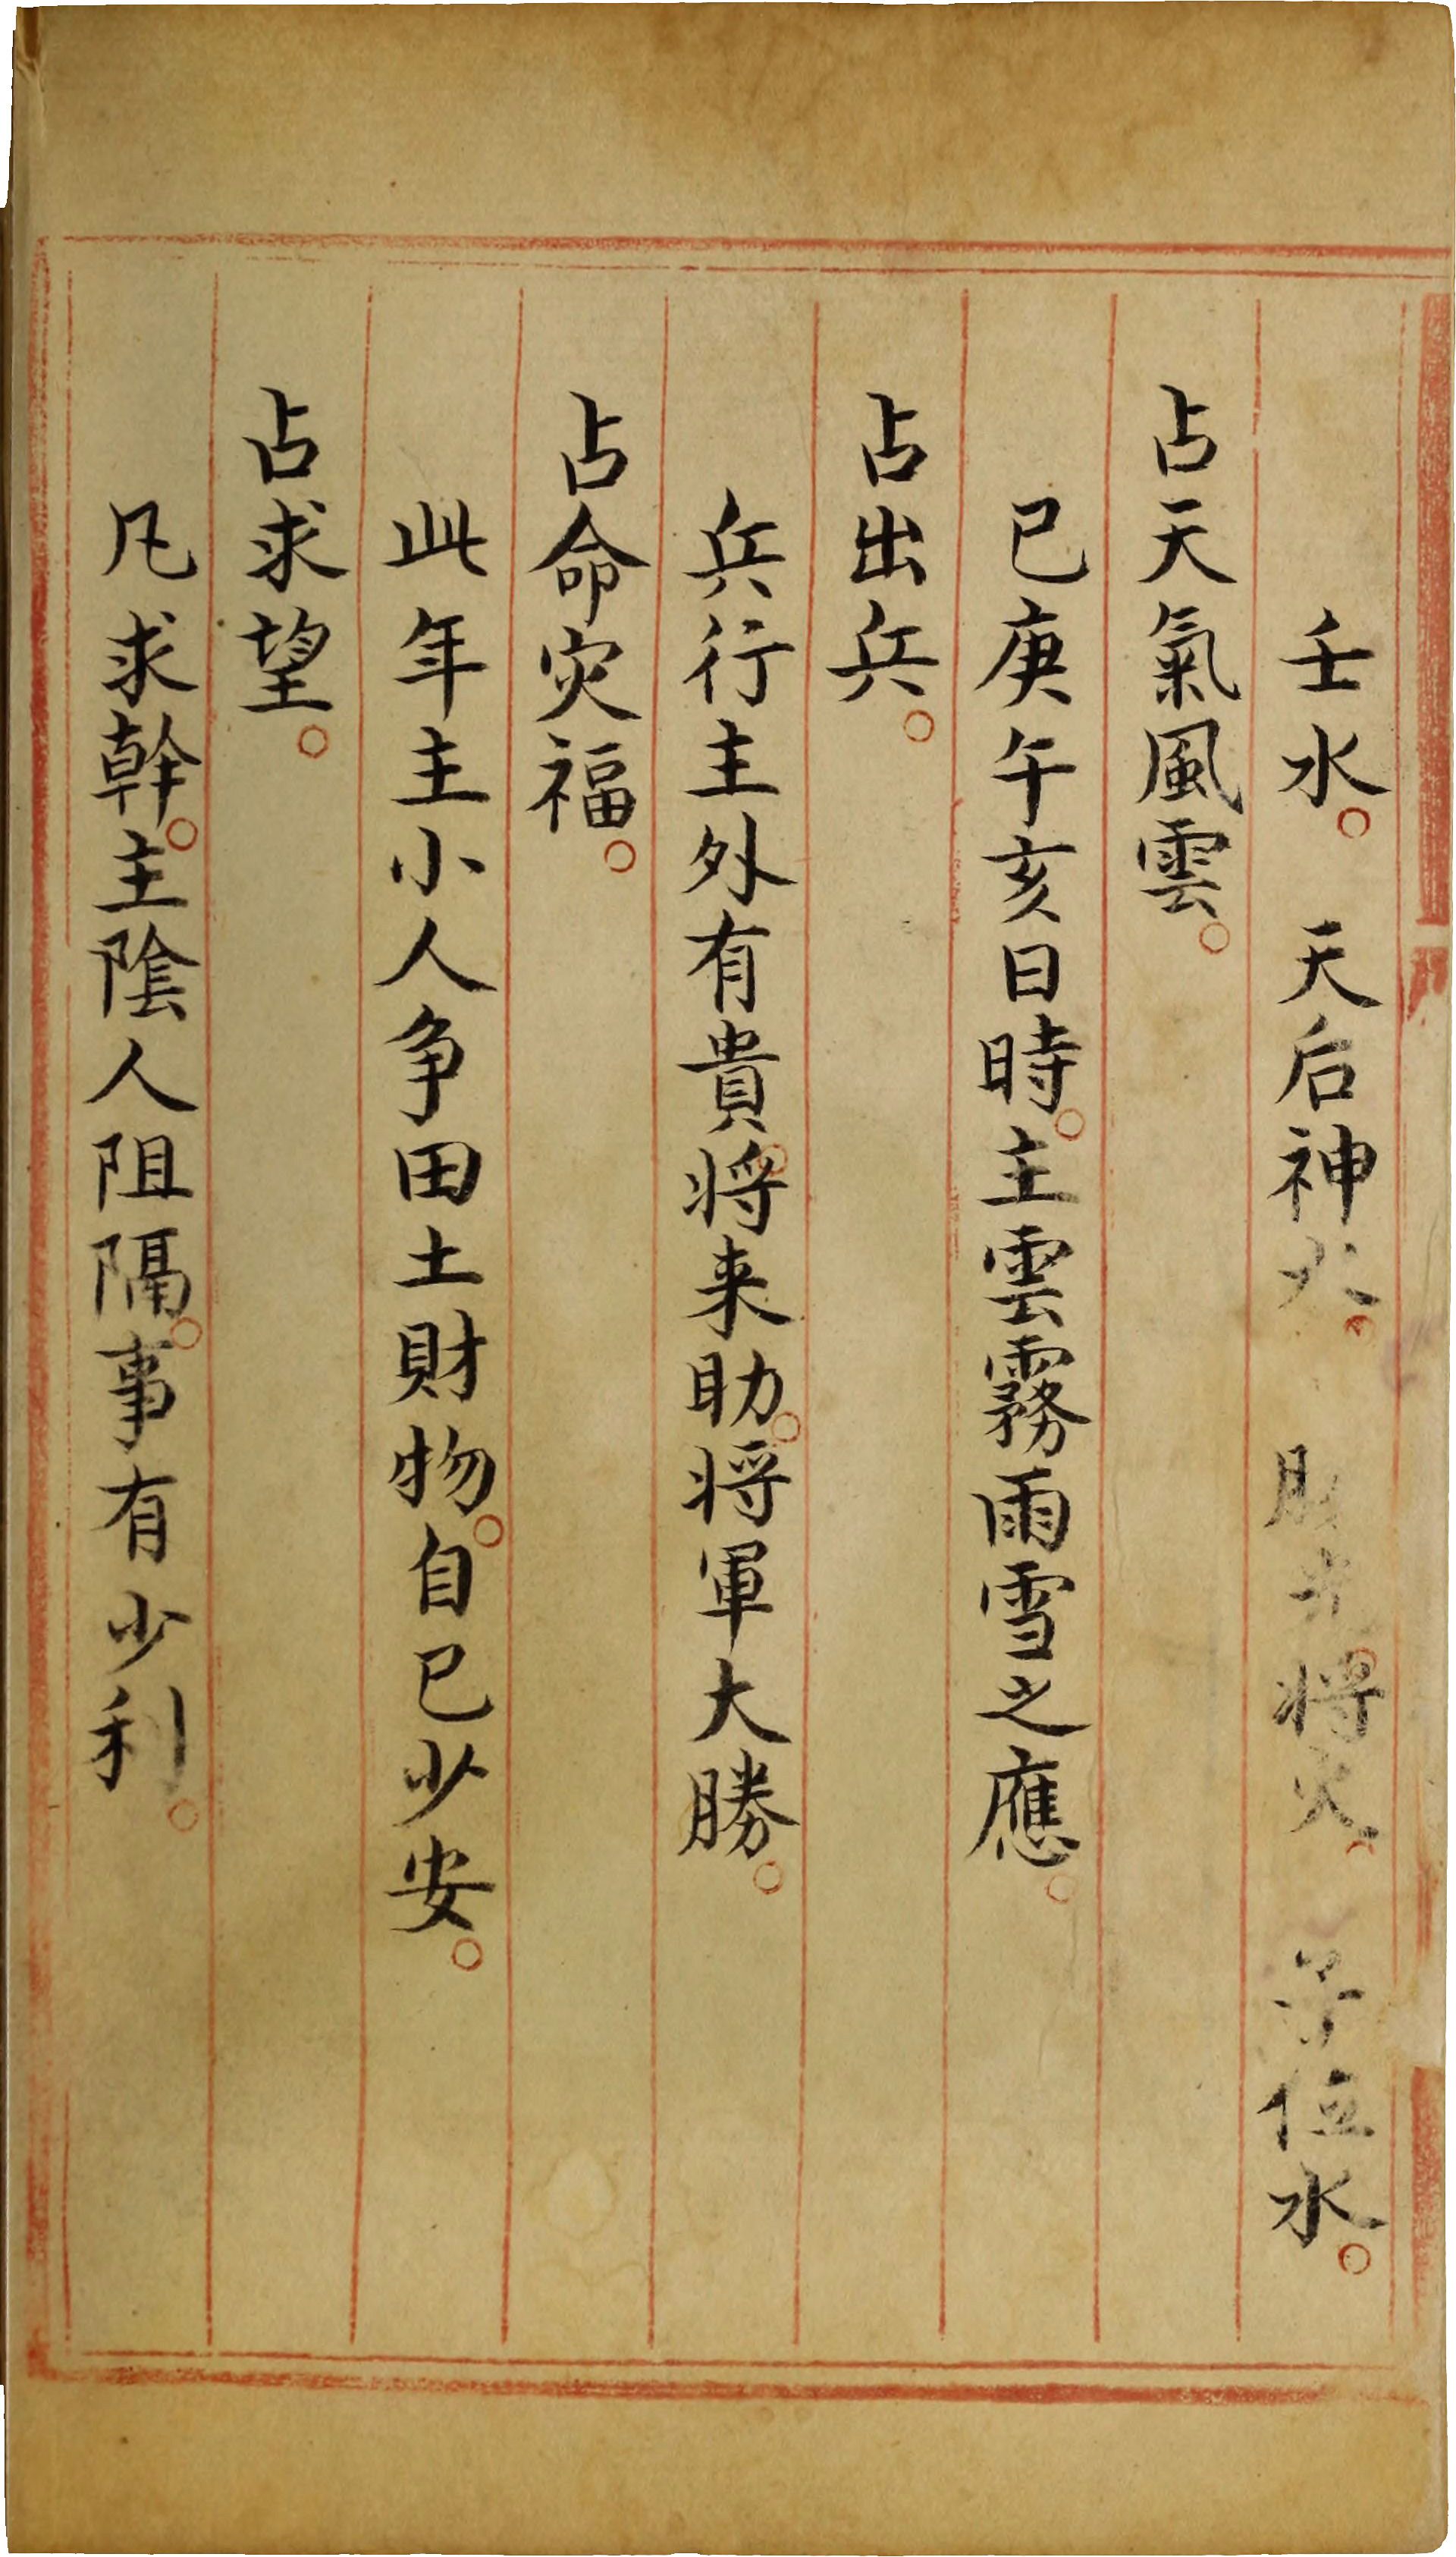 壬水。天后神水。勝光。將火。子位水。
占天氣風雲。
巳庚午亥日時。主雲霧雨雪之應。
占出兵。
兵行主外有貴。将来助。将軍大勝。
占命灾福。
此年主小人争田土財物。自己少安。
占求望。
凡求幹。主陰人阻隔。事有少利。